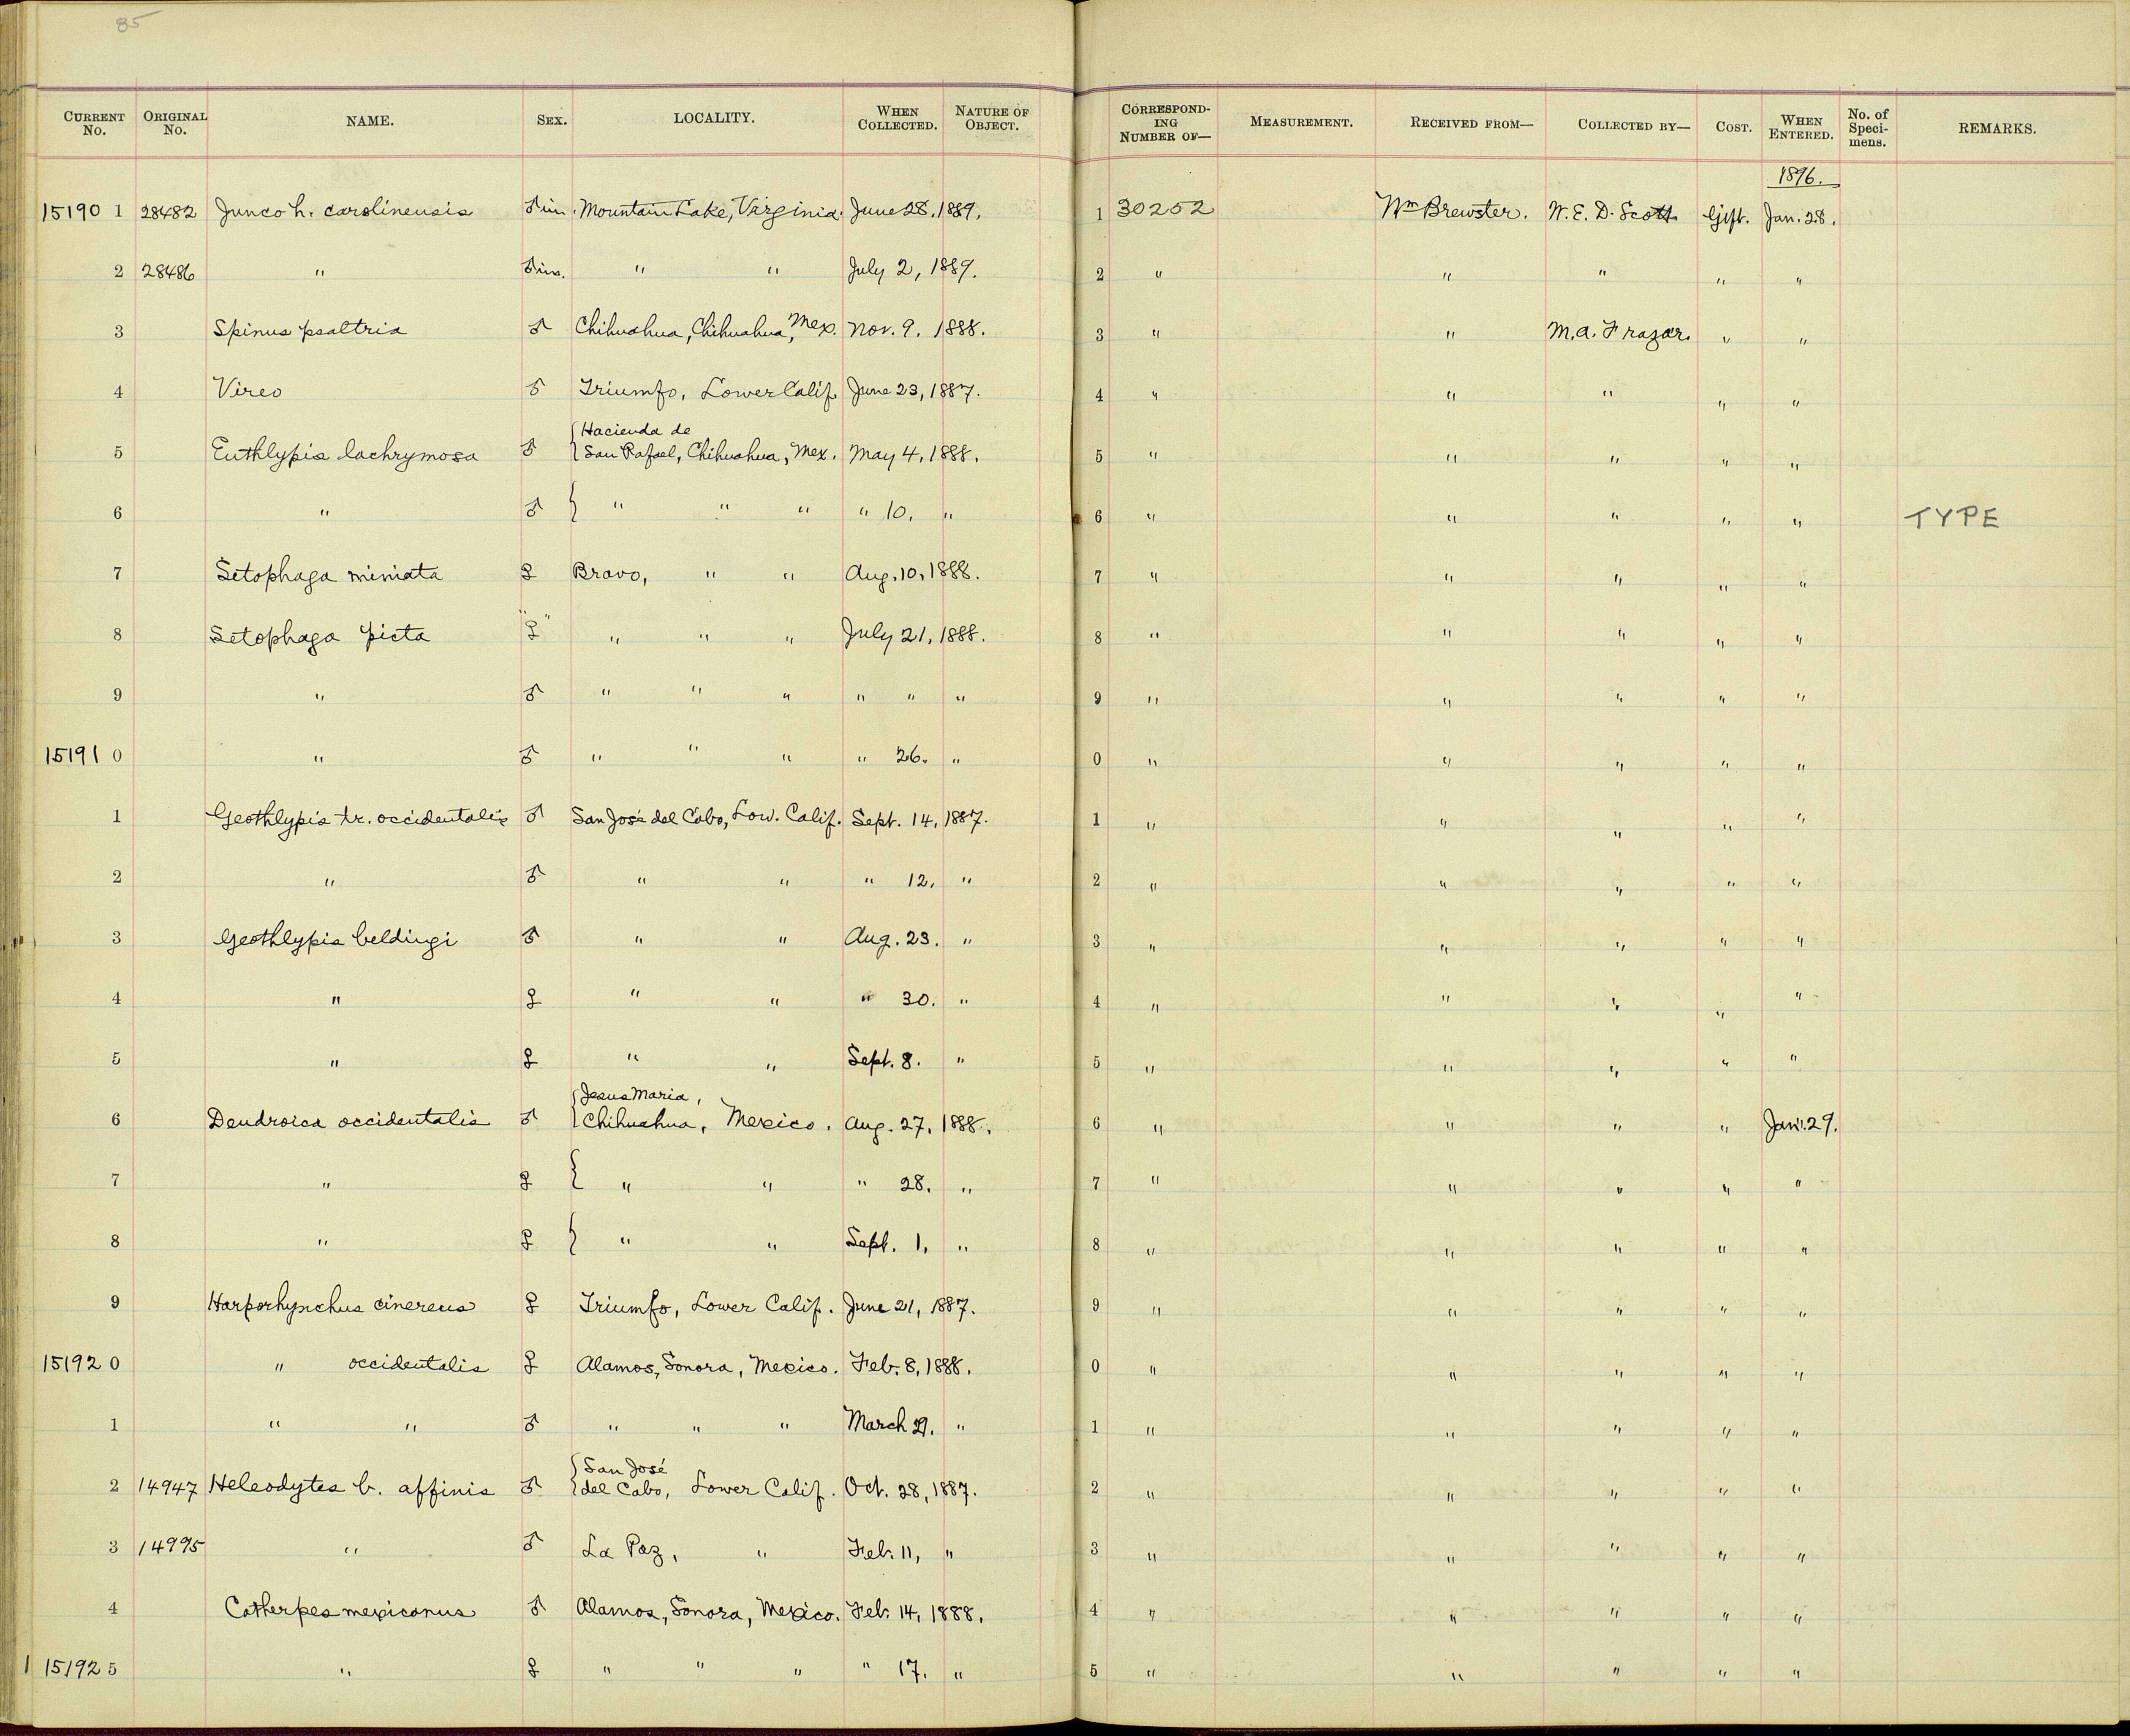 85
CURRENT No. ORIGINAL No. NAME. SEX. LOCALITY. WHEN COLLECTED. NATURE OF OBJECT. CORRESPONDING NUMBER OF— MEASUREMENT. RECEIVED FROM— COLLECTED BY— COST. WHEN ENTERED. No. of Specimens. REMARKS.
1896.
15190 1 28482 Junco h. carolinensis ♂ im. Mountain Lake, Virginia. June 28. 1889. 1 30252 Wm Brewster. W. E. D. Scott Gift. Jan. 28.
2 28486 " ♂ im. " " July 2, 1889. 2 " " " " "
3 Spinus psaltria ♂ Chihuahua, Chihuahua, Mex. Nov. 9. 1888. 3 " " M. A. Frazar. " "
4 Vireo ♂ Triumfo, Lower Calif. June 23, 1887. 4 " " " " "
5 Euthlypis lachrymosa ♂ { Hacienda de
San Rafael, Chihuahua, Mex. May 4, 1888. 5 " " " " "
6 " ♂ { " " " " 10, " 6 " " " " " TYPE
7 Setophaga miniata ♀ Bravo, " " Aug. 10, 1888. 7 " " " " "
8 Setophaga picta "♀" " " " July 21, 1888. 8 " " " " "
9 " ♂ " " " " " " 9 " " " " "
15191 0 " ♂ " " " " 26. " 0 " " " " "
1 Geothlypis tr. occidentalis ♂ San José del Cabo, Low. Calif. Sept. 14, 1887. 1 " " " " "
2 " ♂ " " " 12. " 2 " " " " "
3 Geothlypis beldingi ♂ " " Aug. 23. " 3 " " " " "
4 " ♀ " " " 30. " 4 " " " " "
5 " ♀ " " Sept. 8. " 5 " " " " "
6 Dendroica occidentalis ♂ { Jesus Maria,
Chihuahua, Mexico. Aug. 27, 1888. 6 " " " " Jan. 29.
7 " ♀ { " " " 28. " 7 " " " " "
8 " ♀ { " " Sept. 1, " 8 " " " " "
9 Harporhynchus cinereus ♀ Triumfo, Lower Calif. June 21, 1887. 9 " " " " "
15192 0 " occidentalis ♀ Alamos, Sonora, Mexico. Feb. 8, 1888. 0 " " " " "
1 " " ♂ " " " March " 1 " " " " "
2 14947 Heleodytes b. affinis ♂ { San José
del Cabo, Lower Calif. Oct. 28, 1887. 2 " " " " "
3 14995 " ♂ La Paz, " Feb. 11, " 3 " " " " "
4 Catherpes mexicanus ♂ Alamos, Sonora, Mexico. Feb. 14, 1888. 4 " " " " "
15192 5 " ♀ " " " " 17. " 5 " " " " "